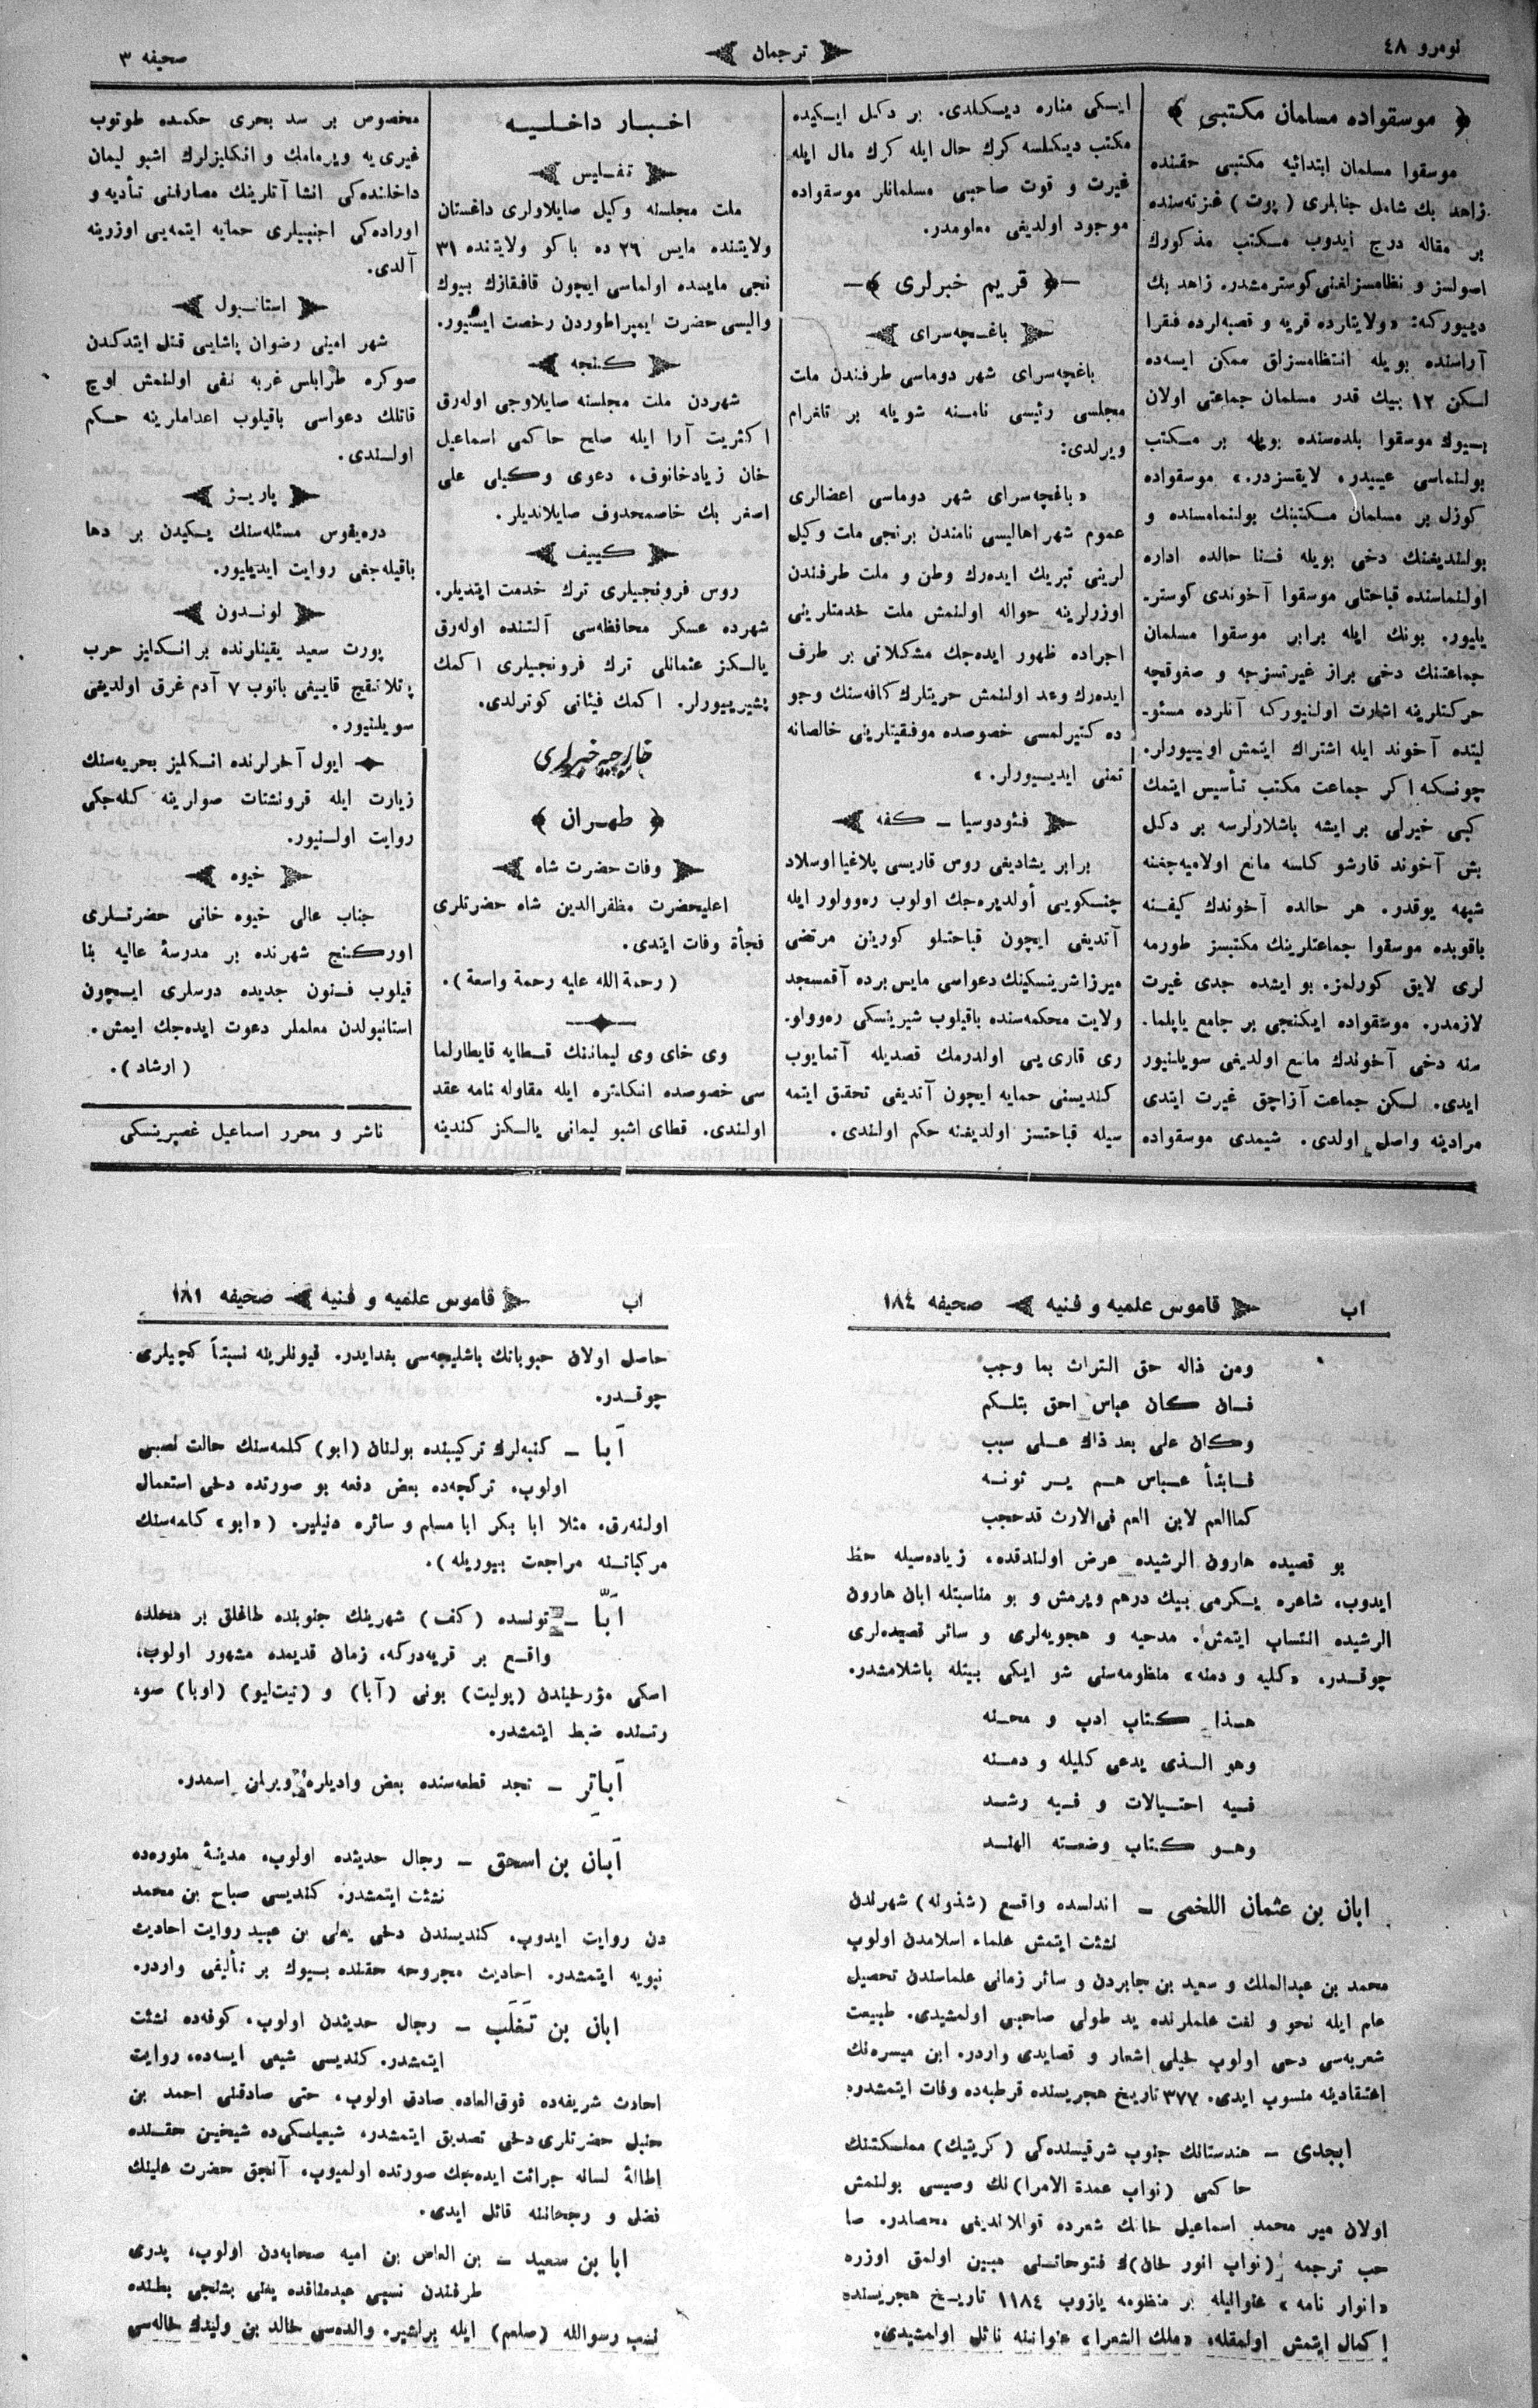 نومرو ٤٨
ترجمان
صحیفه ٣
موسقواده مسلمان مکتبی
موسقوا مسلمان ابتدائیه مکتبی حقنده
زاهد بك شامل جنابلری (پوت) غزته‌سنده
بر مقاله درج ایدوب مکتب مذکورك
اصولسز و نظامسزلغنی کوسترمشدر. زاهد بك
دییورکه: «ولایتلرده قریه و قصبه‌لرده فقرا
آراسنده بویله انتظامسزلق ممکن ایسه‌ده
لکن ١٢ بیك قدر مسلمان جماعتی اولان
بیوك موسقوا بلده‌سنده بویله بر مکتب
بولنماسی عیبدر، لایقسزدر.» موسقواده
کوزل بر مسلمان مکتبنك بولنمامسنده و
بولندیغنك دخی بویله فنا حالده اداره
اولنماسنده قباحتلی موسقوا آخوندی کوستر-
یلیور. بونك ایله برابر موسقوا مسلمان
جماعتنك دخی براز غیرتسزجه و صغوقچه
حرکتلرینه اشارت اولنیورکه آنلرده مسئو-
لیتده آخوند ایله اشتراك ایتمش اولییورلر.
چونکه اکر جماعت مکتب تأسیس ایتمك
کبی خیرلی بر ایشه باشلارلرسه بر دکل
بش آخوند قارشو کلسه مانع اولامیه‌جغنه
شبهه یوقدر. هر حالده آخوندك کیفنه
باقوبده موسقوا جماعتلرینك مکتبسز طورمه
لری لایق کورلمز. بو ایشده جدی غیرت
لازمدر. موسقواده ایکنجی بر جامع یاپلما-
سنه دخی آخوندك مانع اولدیغی سویلنیور
ایدی. لکن جماعت آزاچق غیرت ایتدی
مرادینه واصل اولدی. شیمدی موسقواده
ایسکی مناره دیکلدی. بر دکل ایکیده
مکتب دیکلسه کرك حال ایله کرك مال ایله
غیرت و قوت صاحبی مسلمانلر موسقواده
موجود اولدیغی معلومدر.
قریم خبرلری
باغچه‌سرای
باغچه‌سرای شهر دوماسی طرفندن ملت
مجلسی رئیسی نامنه شویله بر تلغرام
ویرلدی:
«باغچه‌سرای شهر دوماسی اعضالری
عموم شهر اهالیسی نامندن برنجی ملت وکیل
لرینی تبریك ایده‌رك وطن و ملت طرفندن
اوزرلرینه حواله اولنمش ملت خدمتلرینی
اجراده ظهور ایده‌جك مشکلاتی بر طرف
ایده‌رك وعد اولنمش حریتلرك کافه‌سنك وجو
ده کتیرلمسی خصوصده موفقیتلرینی خالصانه
تمنی ایدییورلر.»
فئودوسیا – کفه
برابر یشادیغی روس قاریسی پلاغیا اوسلاد
چنسکویی أولدیره‌جك اولوب ره‌وولور ایله
آتدیغی ایچون قباحتلو کورینن مرتضی
میرزا شرینسکینك دعواسی مایس برده آقمسجد
ولایت محکمه‌سنده باقیلوب شیرینسکی ره‌وولو-
ری قاری یی اولدرمك قصدیله آتمایوب
کندیسنی حمایه ایچون آتدیغی تحقق ایتمه
سیله قباحتسز اولدیغنه حکم اولندی.
اخبار داخلیه
تفلیس
ملت مجلسنه وکیل صایلاولری داغستان
ولایتنده مایس ٢٦ ده باکو ولایتنده ٣١
نجی مایسده اولماسی ایچون قافقازك بیوك
والیسی حضرت ایمپراطوردن رخصت ایستیور.
کنجه
شهردن ملت مجلسنه صایلاوجی اوله‌رق
اکثریت آرا ایله صلح حاکمی اسماعیل
خان زیادخانوف، دعوی وکیلی علی
اصغر بك خاصمحدوف صایلاندیلر.
کییف
روس فرونجیلری ترك خدمت ایتدیلر.
شهرده عسکر محافظه‌سی آلتنده اوله‌رق
یالکز عثمانلی ترك فرونجیلری اکمك
پشیرییورلر. اکمك فیئاتی کوترلدی.
خارجیه خبرلری
طهران
وفات حضرت شاه
اعلیحضرت مظفرالدین شاه حضرتلری
فجأة وفات ایتدی.
(رحمة الله علیه رحمة واسعة).
وی خای وی لیماننك قطایه قایطارلما
سی خصوصده انکلتره ایله مقاوله نامه عقد
اولندی. قطای اشبو لیمانی یالکز کندینه
مخصوص بر سد بحری حکمنده طوتوب
غیری یه ویرمامك و انکلیزلرك اشبو لیمان
داخلنده‌کی انشاآتلرینك مصارفنی تأدیه و
اوراده‌کی اجنبیلری حمایه ایتمه‌یی اوزرینه
آلدی.
استانبول
شهر امینی رضوان پاشایی قتل ایتدکدن
صوکره طرابلس غربه نفی اولنمش اوچ
قاتلك دعواسی باقیلوب اعداملرینه حکم
اولندی.
پاریز
دره‌یفوس مسئله‌سنك یکیدن بر دها
باقیله‌جغی روایت ایدیلیور.
لوندون
پورت سعید یقینلرنده بر انکلیز حرب
پتلانقیج قاییغی باتوب ٧ آدم غرق اولدیغی
سویلنیور.
ایول آخرلرنده انکلیز بحریه‌سنك
زیارت ایله قرونشتات صولرینه کله‌جکی
روایت اولنیور.
خیوه
جناب عالی خیوه خانی حضرتلری
اورکنج شهرنده بر مدرسهٔ عالیه بنا
قیلوب فنون جدیده درسلری ایچون
استانبولدن معلملر دعوت ایده‌جك ایمش.
(ارشاد).
ناشر و محرر اسماعیل غصپرینسکی
اب
قاموس علمیه و فنیه
صحیفه ١٨٤
ومن ذاله حق التراث بما وجب
فان کان عباس احق بتلکم
وکان علی بعد ذاك علی سبب
فابناٴ عباس هم یرثونه
کماالعم لابن العم فی‌الارث قدحجب
بو قصیده هارون الرشیده عرض اولندقده، زیاده‌سیله حظ
ایدوب، شاعره یکرمی بیك درهم ویرمش و بو مناسبتله ابان هارون
الرشیده انتساب ایتمش. مدحیه و هجویه‌لری و سائر قصیده‌لری
چوقدر. «کلیه و دمنه» منظومه‌سنی شو ایکی بیتله باشلامشدر.
هذا کتاب ادب و محنه
وهو الذی یدعی کلیله و دمنه
فیه احتیالات و فیه رشد
وهو کتاب وضعته الهند
ابان بن عثمان اللخمی – اندلسده واقع (شذونه) شهرندن
نشئت ایتمش علماء اسلامدن اولوب
محمد بن عبدالملك و سعید بن جابردن و سائر زمانی علماسندن تحصیل
علم ایله نحو و لغت علملرنده ید طولی صاحبی اولمشیدی. طبیعت
شعریه‌سی دخی اولوب خیلی اشعار و قصایدی واردر. ابن میسره‌نك
اعتقادینه منسوب ایدی. ٣٧٧ تاریخ هجریسنده قرطبه‌ده وفات ایتمشدر.
ابجدی – هندستانك جنوب شرقیسنده‌کی (کریتیك) مملکتنك
حاکمی (نواب عمدة الامرا) نك وصیسی بولنمش
اولان میر محمد اسماعیل خانك شعرده قوللاندیغی مخلصدر. صا
حب ترجمه (نواب انور خان)ك فتوحاتنی مبین اولمق اوزره
«انوار نامه» عنوانیله بر منظومه یازوب ١١٨٤ تاریخ هجریسنده
اکمال ایتمش اولمقله، «ملك الشعرا» عنواننه نائل اولمشیدی.
اب
قاموس علمیه و فنیه
صحیفه ١٨١
حاصل اولان حبوباتك باشلیجه‌سی بغدایدر. قیونلرینه نسبتاً کچیلری
چوقدر.
اَبا – کنیه‌لرك ترکیبنده بولنان (ابو) کلمه‌سنك حالت نصبی
اولوب، ترکچه‌ده بعض دفعه بو صورتده دخی استعمال
اولنه‌رق، مثلا ابا بکر ابا مسلم و سائره دنیلیر. («ابو» کلمه‌سنك
مرکباتنه مراجعت بیوریله).
اَبّا – تونسده (کف) شهرینك جنوبنده طاغلق بر محلده
واقع بر قریه‌درکه، زمان قدیمده مشهور اولوب،
اسکی مؤرخیندن (پولیت) بونی (آبا) و (تیت‌لیو) (اوبا) صو،
رتنده ضبط ایتمشدر.
اَباتِر – نجد قطعه‌سنده بعض وادیلره ویرلن اسمدر.
اَبان بن اسحق – رجال حدیثده اولوب، مدینهٔ منوره‌ده
نشئت ایتمشدر. کندیسی صباح بن محمد
دن روایت ایدوب، کندیسندن دخی یعلی بن عبید روایت احادیث
نبویه ایتمشدر. احادیث مجروحه حقنده بیوك بر تألیفی واردر.
ابان بن تَغلَب – رجال حدیثدن اولوب، کوفه‌ده نشئت
ایتمشدر. کندیسی شیعی ایسه‌ده، روایت
احادث شریفه‌ده فوق‌العاده صادق اولوب، حتی صادقنی احمد بن
حنبل حضرتلری دخی تصدیق ایتمشدر، شیعیلکی‌ده شیخین حقنده
اطالهٔ لسانه جرائت ایده‌جك صورتده اولمیوب، آنجق حضرت علینك
فضل و رجحاننه قائل ایدی.
ابا بن سعید – بن العاص بن امیه صحابه‌دن اولوب، پدری
طرفندن نسبی عبدمنافده یعنی بشنجی بطنده
نسب رسوالله (صلعم) ایله برلشیر. والده‌سی خالد بن ولیدك خاله‌سی